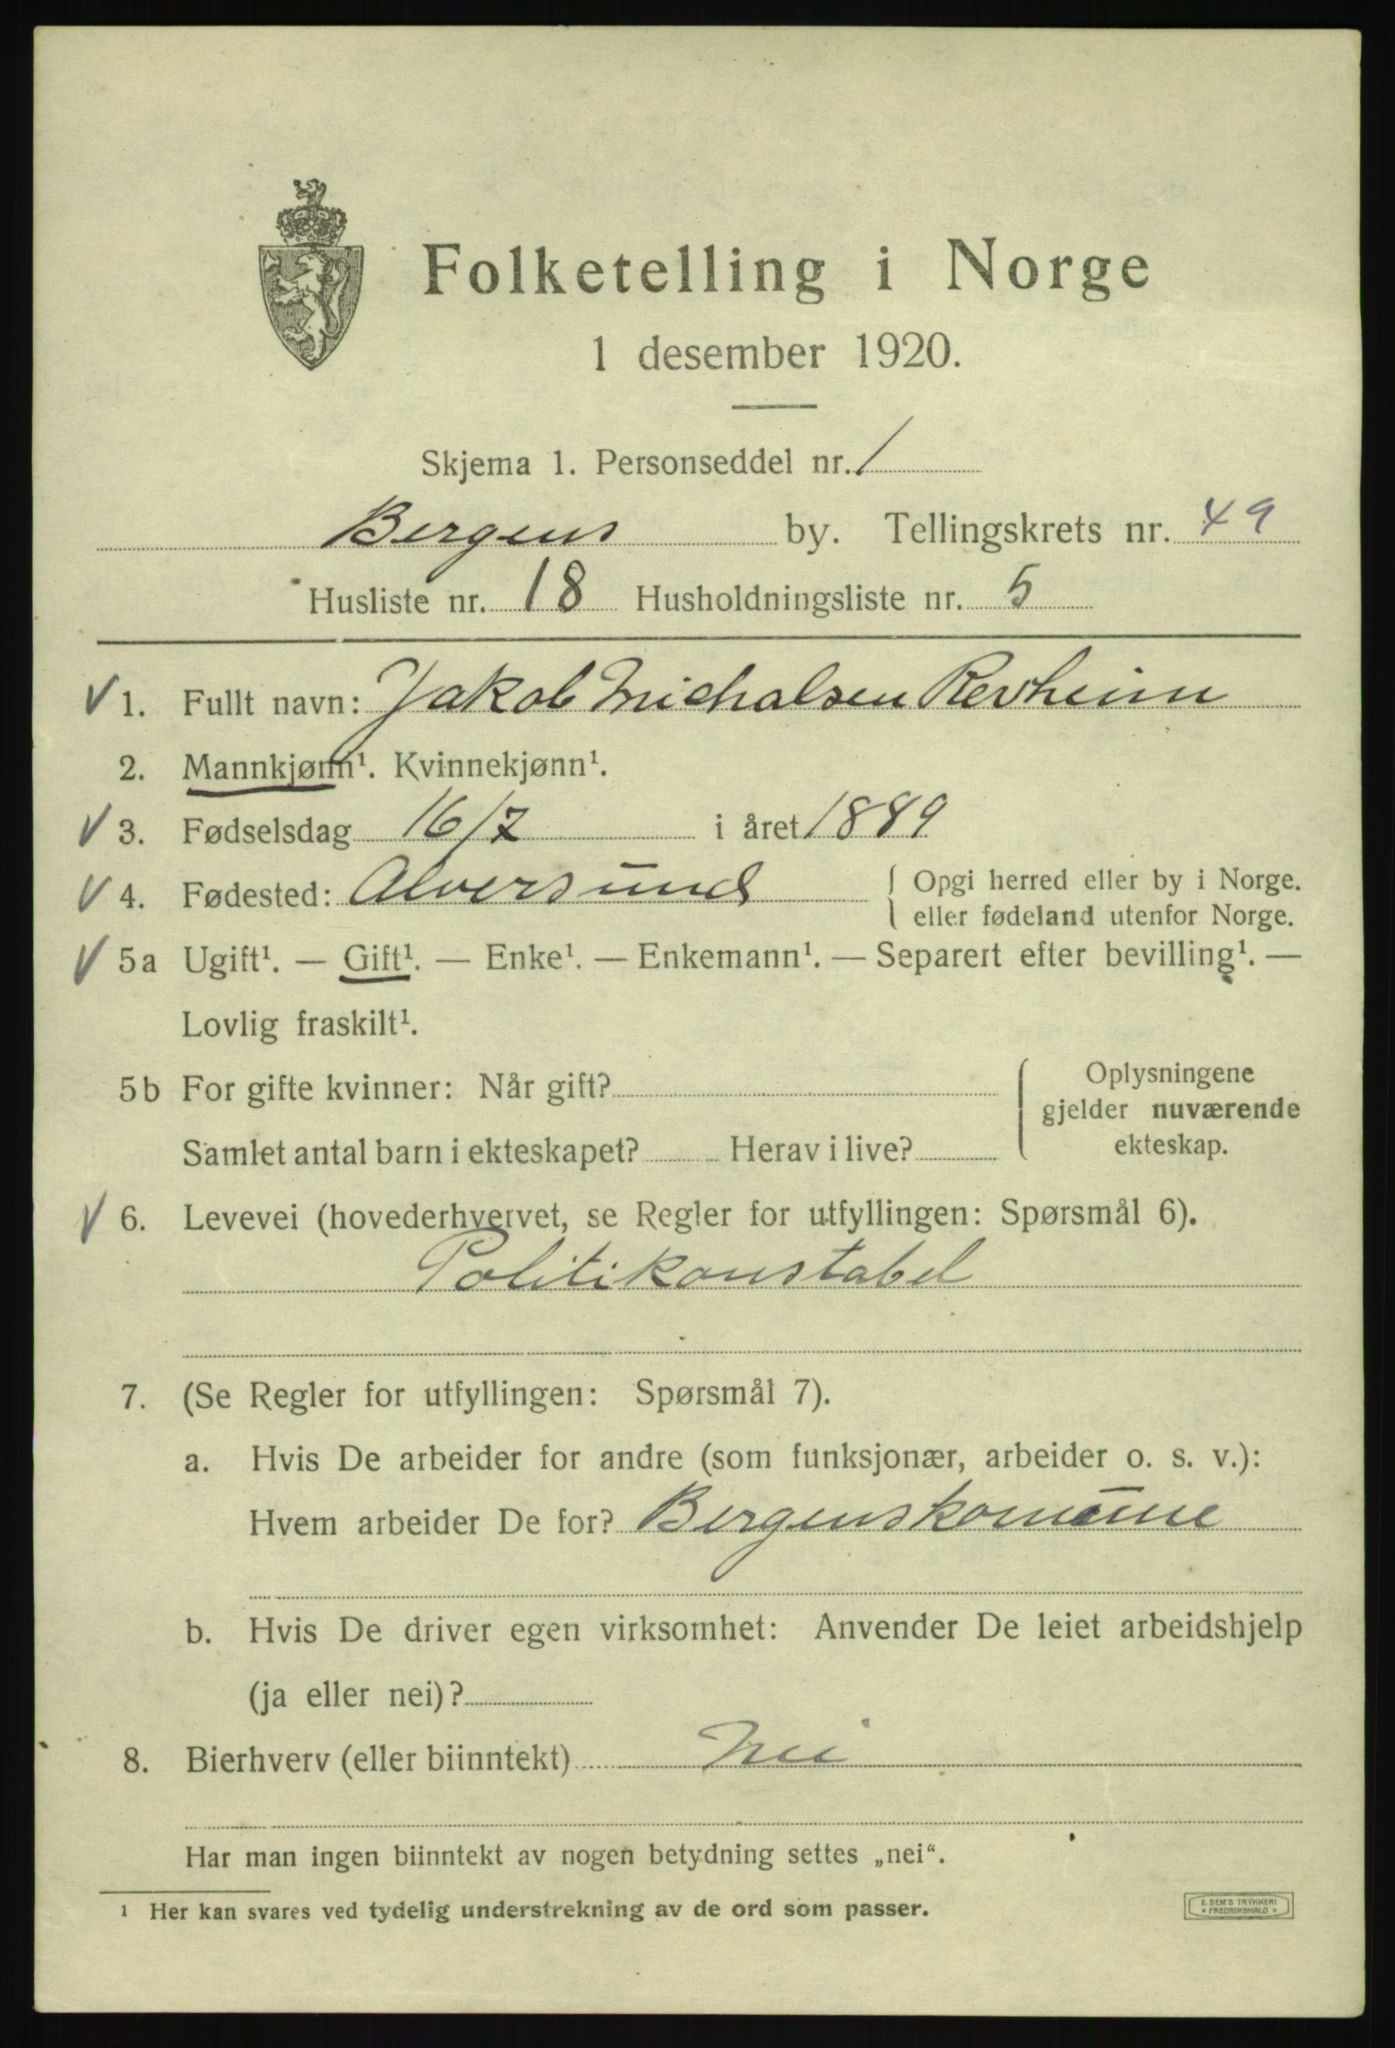 Folketelling i Norge
1 desember 1920.
Skjema 1. Personseddel nr. 1
Bergens by. Tellingskrets nr. 49
Husliste nr. 18 Husholdningsliste nr. 5
1. Fullt navn: Jakob Michalsen Revheim
2. Mannkjønn¹. Kvinnekjønn¹.
3. Fødselsdag 16/7 i året 1889
4. Fødested: Alversund { Opgi herred eller by i Norge.
eller fødeland utenfor Norge.
5a Ugift¹. — Gift¹. — Enke¹. — Enkemann¹. — Separert efter bevilling¹. —
Lovlig fraskilt¹.
5b For gifte kvinner: Når gift?
Samlet antal barn i ekteskapet? Herav i live?
Oplysningene
gjelder nuværende
ekteskap.
6. Levevei (hovederhvervet, se Regler for utfyllingen: Spørsmål 6).
Politikonstabel
7. (Se Regler for utfyllingen: Spørsmål 7).
a. Hvis De arbeider for andre (som funksjonær, arbeider o. s. v.):
Hvem arbeider De for? Bergenskomune
b. Hvis De driver egen virksomhet: Anvender De leiet arbeidshjelp
(ja eller nei)?
8. Bierhverv (eller biinntekt) Nei
Har man ingen biinntekt av nogen betydning settes „nei“.
¹ Her kan svares ved tydelig understrekning av de ord som passer.
E. SEM'S TRYKKERI
* FREDRIKSHALD *